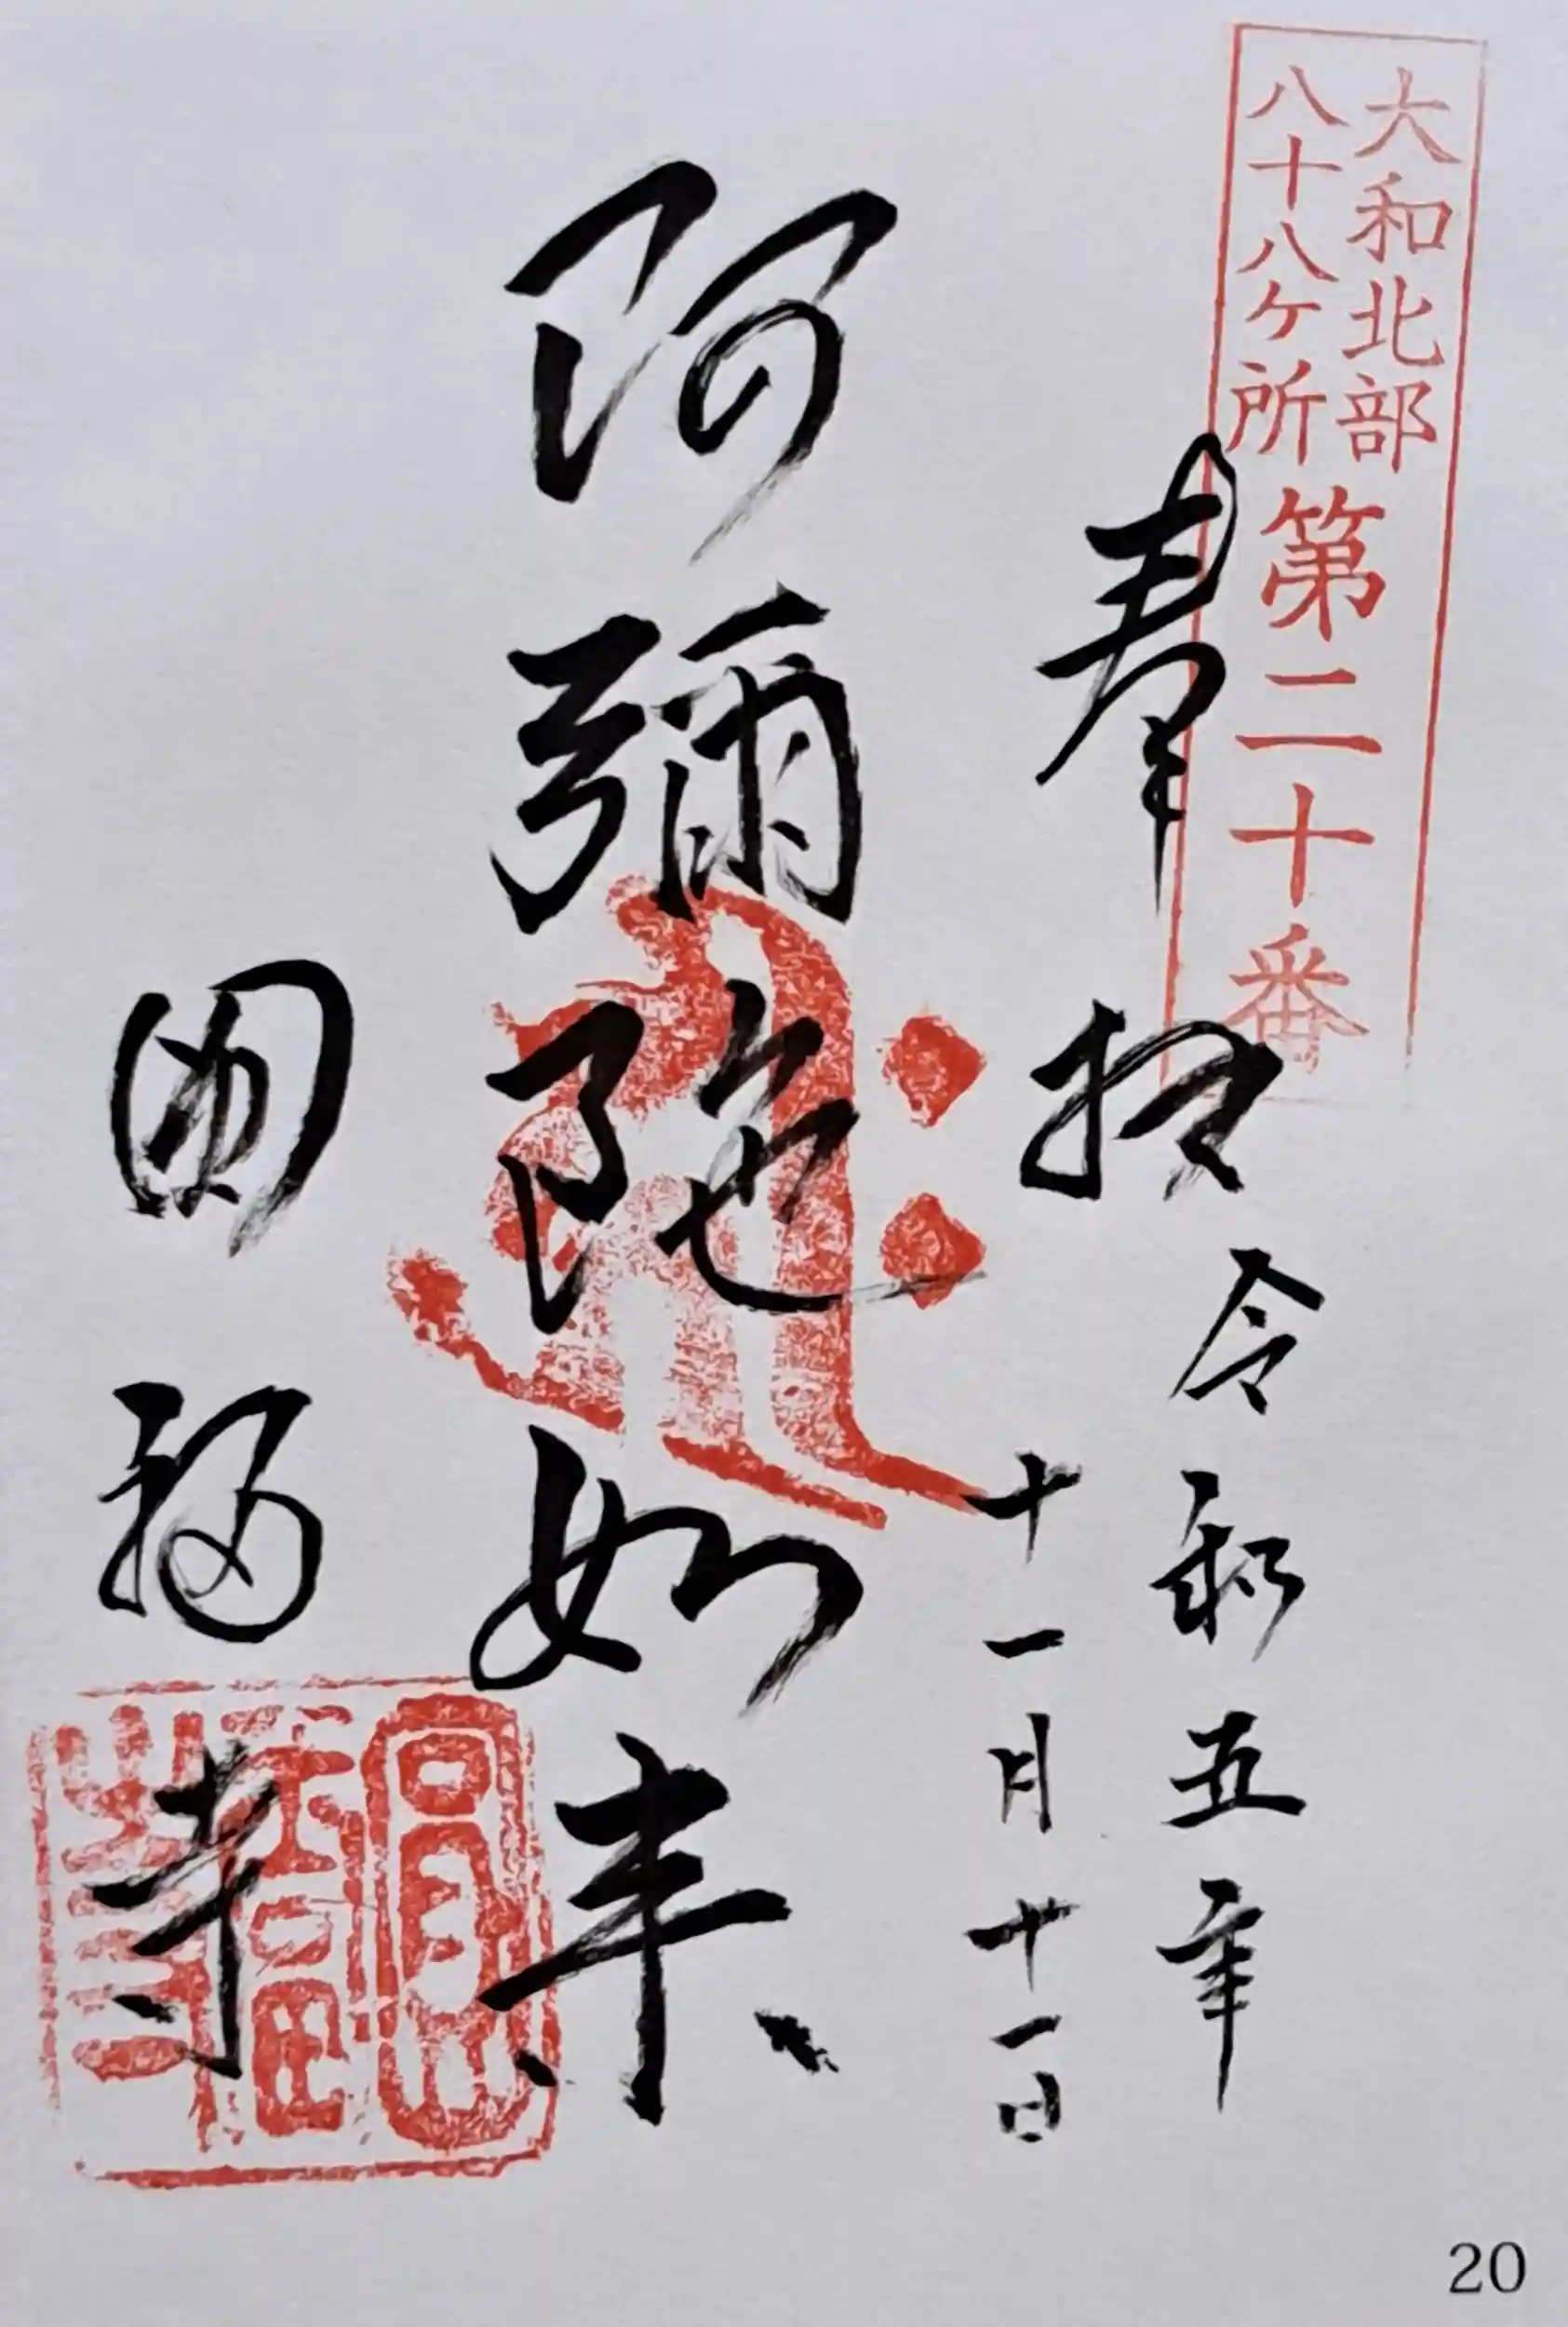 大和北部
八十八ケ所
第二十番
奉拝
令和五年
十一月十一日
阿彌陀如来
圓福寺
圓福寺
20